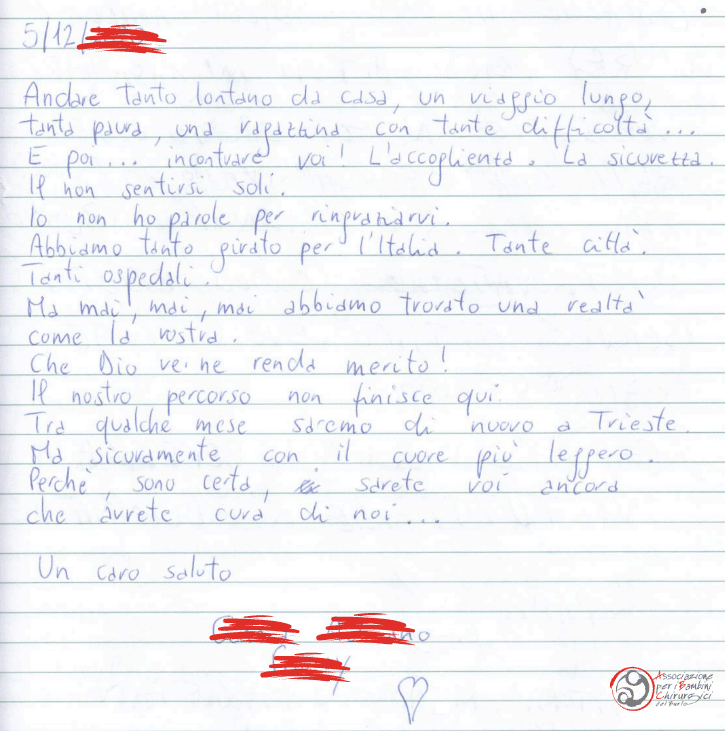 5/12/
Andare tanto lontano da casa, un viaggio lungo,
tanta paura, una ragazzina con tante difficoltà...
E poi... incontrare voi! L'accoglienza. La sicurezza.
Il non sentirsi soli.
Io non ho parole per ringraziarvi.
Abbiamo tanto girato per l'Italia. Tante città.
Tanti ospedali.
Ma mai, mai, mai abbiamo trovato una realtà
come la vostra.
Che Dio ve ne renda merito!
Il nostro percorso non finisce qui.
Tra qualche mese saremo di nuovo a Trieste.
Ma sicuramente con il cuore più leggero.
Perchè, sono certa, sarete voi ancora
che avrete cura di noi...
Un caro saluto
Associazione
per i Bambini
Chirurgici
del Burlo